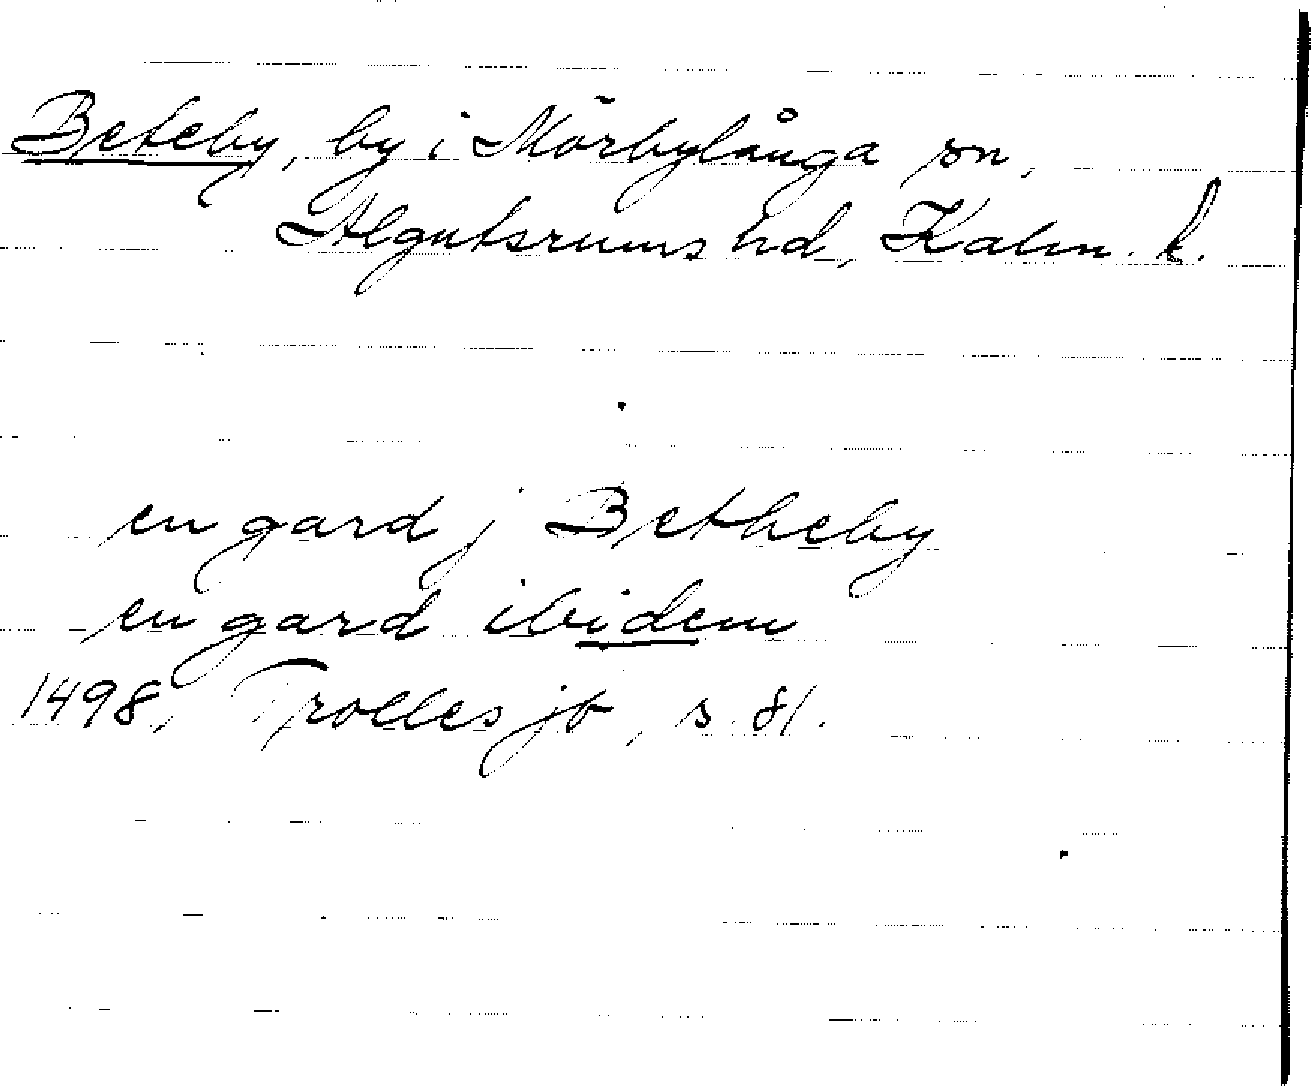 Beteby, by i Mörbylånga sn,
Algutsrums hd, Kalm. l.
en gard j Betheby
en gard ibidem
1498, Trolles jb, s. 81.